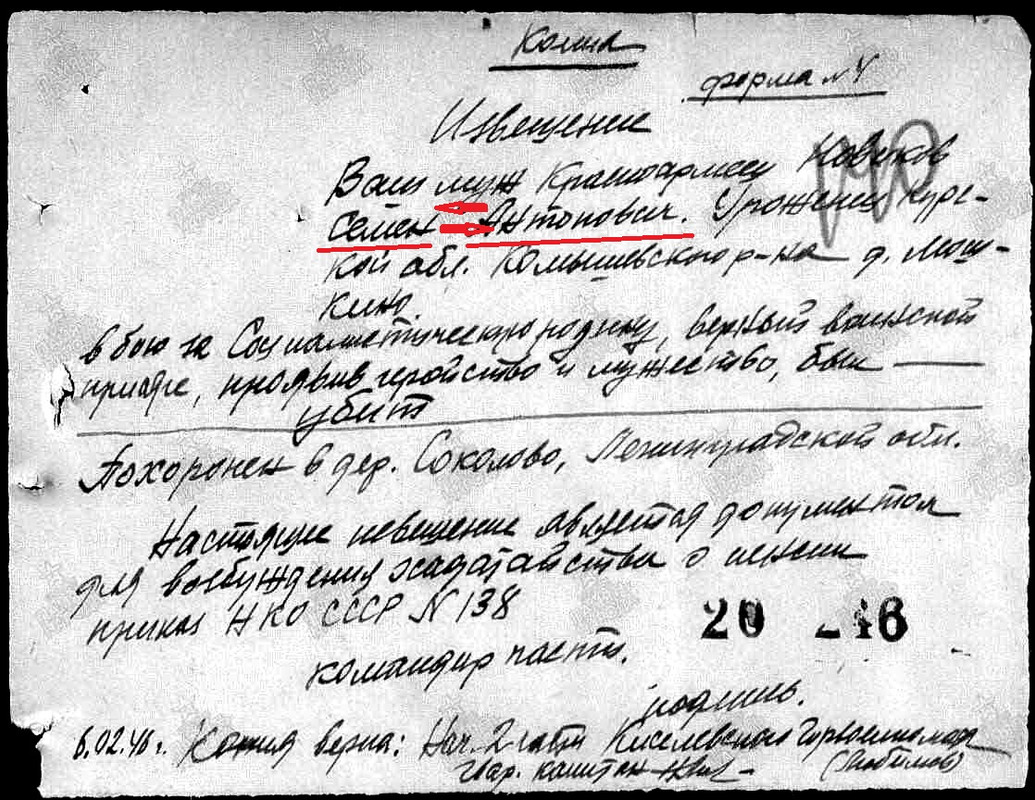 Копия
форма №4
Извещение
Ваш муж Красноармеец Новиков
Семен Антонович. Уроженец Курс-
кой обл. Комышевского р-на д. Мош-
кино.
в бою за Социалистическую родину, верный воинской
присяге, проявив геройство и мужество, был
убит
Похоронен в дер. Соколово, Ленинградской обл.
Настоящее извещение является документом
для возбуждения ходатайства о пенсии
приказ НКО СССР N 138
20 46
командир части.
подпись.
6.02.46 г. Копия верна: Нач. 2 части Киселевского Горвоенкомата
Гвар. капитан (Любимов)